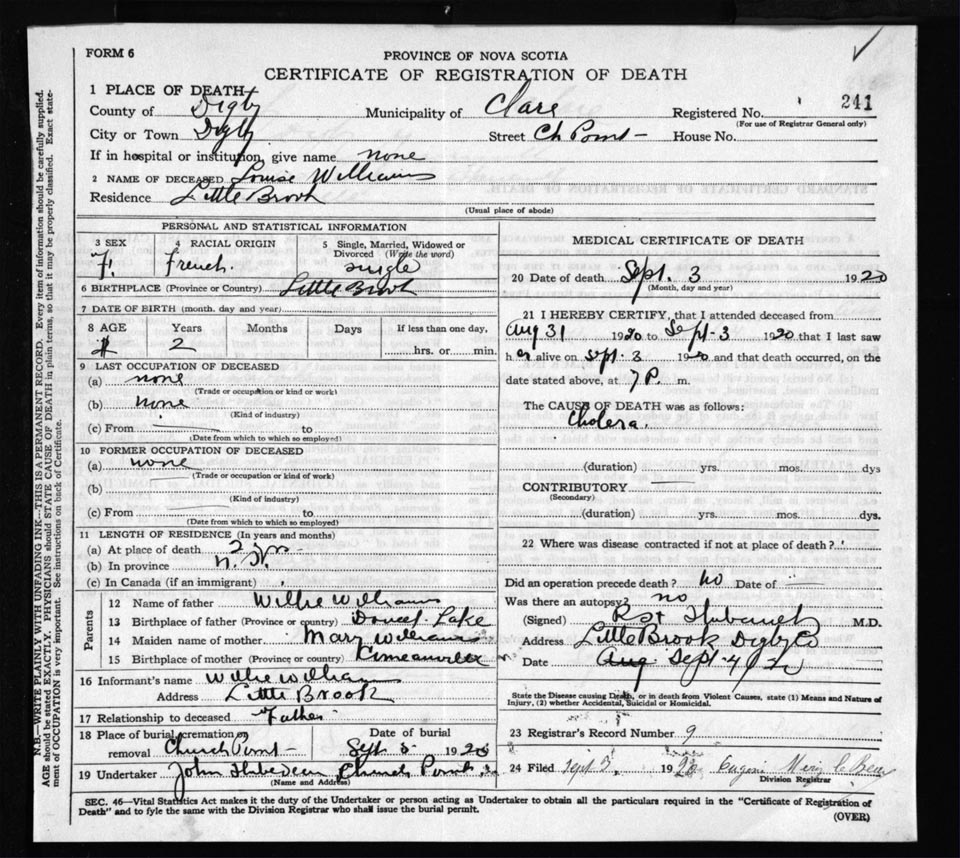 FORM 6
PROVINCE OF NOVA SCOTIA
CERTIFICATE OF REGISTRATION OF DEATH
1 PLACE OF DEATH
County of Digby Municipality of Clare Registered No. 241
(For use of Registrar General only)
City or Town Digby Street Ch Point House No.
If in hospital or institution, give name none
2 NAME OF DECEASED Louise Williams
Residence Little Brook
(Usual place of abode)
PERSONAL AND STATISTICAL INFORMATION
3 SEX 4 RACIAL ORIGIN 5 Single, Married, Widowed or
Divorced (Write the word)
F. French. single
6 BIRTHPLACE (Province or Country) Little Brook
7 DATE OF BIRTH (month, day and year)
8 AGE Years Months Days If less than one day,
2 hrs. or min.
9 LAST OCCUPATION OF DECEASED
(a) none
(Trade or occupation or kind or work)
(b) none
(Kind of industry)
(c) From to
(Date from which to which so employed)
10 FORMER OCCUPATION OF DECEASED
(a) none
(Trade or occupation or kind of work)
(b)
(Kind of industry)
(c) From to
(Date from which to which so employed)
11 LENGTH OF RESIDENCE (In years and months)
(a) At place of death 2 yrs
(b) In province
(c) In Canada (if an immigrant)
Parents
12 Name of father Willie Williams
13 Birthplace of father (Province or country) Doucet Lake
14 Maiden name of mother Mary Williams
15 Birthplace of mother (Province or country)
16 Informant's name Willie Williams
Address Little Brook
17 Relationship to deceased Father
18 Place of burial, cremation or removal Church Point Date of burial Sept 5 1920
19 Undertaker John Church Point
(Name and Address)
MEDICAL CERTIFICATE OF DEATH
20 Date of death Sept. 3 1920
(Month, day and year)
21 I HEREBY CERTIFY, that I attended deceased from
Aug 31 1920 to Sept 3 1920 that I last saw
her alive on Sept. 3 1920 and that death occurred, on the
date stated above, at 7 P. m.
The CAUSE OF DEATH was as follows:
Cholera.
(duration) yrs. mos. dys
CONTRIBUTORY
(Secondary)
(duration) yrs. mos. dys.
22 Where was disease contracted if not at place of death?
Did an operation precede death? no Date of
Was there an autopsy? no
(Signed) M.D.
Address Little Brook Digby Co
Date Aug Sept 4
State the Disease causing Death, or in death from Violent Causes, state (1) Means and Nature of
Injury, (2) whether Accidental, Suicidal or Homicidal.
23 Registrar's Record Number 9
24 Filed Sept 1920
Division Registrar
SEC. 46—Vital Statistics Act makes it the duty of the Undertaker or person acting as Undertaker to obtain all the particulars required in the "Certificate of Registration of
Death" and to fyle the same with the Division Registrar who shall issue the burial permit.
(OVER)
N.B.—WRITE PLAINLY WITH UNFADING INK—THIS IS A PERMANENT RECORD. Every item of information should be carefully supplied.
AGE should be stated EXACTLY. PHYSICIANS should STATE CAUSE OF DEATH in plain terms, so that it may be properly classified. Exact state-
ment of OCCUPATION is very important. See instructions on back of Certificate.